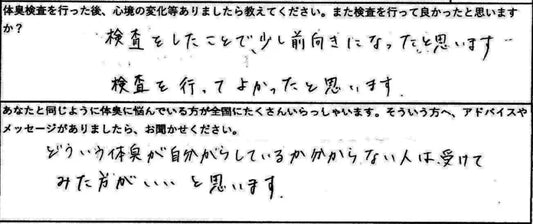 体臭検査を行った後、心境の変化等ありましたら教えてください。また検査を行って良かったと思います
か?
検査をしたことで、少し前向きになったと思います
検査を行ってよかったと思います.
あなたと同じように体臭に悩んでいる方が全国にたくさんいらっしゃいます。そういう方へ、アドバイスや
メッセージがありましたら、お聞かせください。
どういう体臭が自分からしているか分からない人は受けて
みた方がいいと思います.